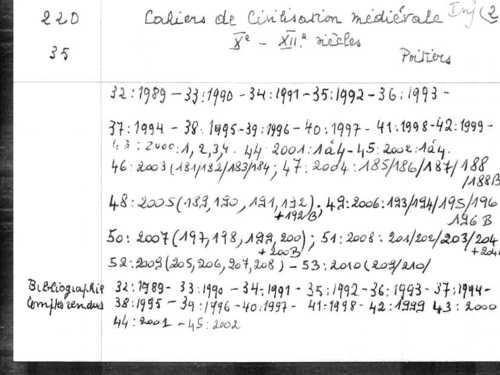 220 Cahiers de Civilisation médiévale Inf (2
Xe - XII.e siècles
35 Poitiers
32:1989 - 33:1990 - 34:1991 - 35:1992 - 36:1993 -
37:1994 - 38:1995 - 39:1996 - 40:1997 - 41:1998 - 42:1999 -
43:2000:1,2,3,4. 44:2001:1 à 4 - 45:2002:1 à 4.
46:2003 (181/182/183/184; 47:2004:185/186/187/188
/188B
48:2005 (189, 190, 191, 192). 49:2006:193/194/195/196
+192B 196B
50:2007 (197, 198, 199, 200); 51:2008:201/202/203/204
+200B
52:2009 (205, 206, 207, 208) - 53:2010 (209/210/
Bibliographie 32:1989 - 33:1990 - 34:1991 - 35:1992 - 36:1993 - 37:1994 -
Comptes rendus 38:1995 - 39:1996 - 40:1997 - 41:1998 - 42:1999 43:2000
44:2001 - 45:2002